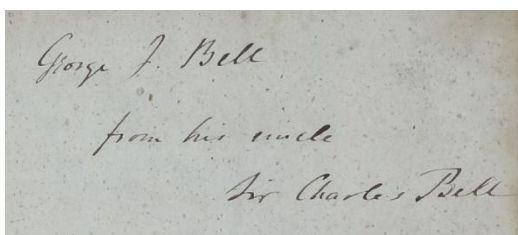 George J. Bell
from his uncle
Sir Charles Bell